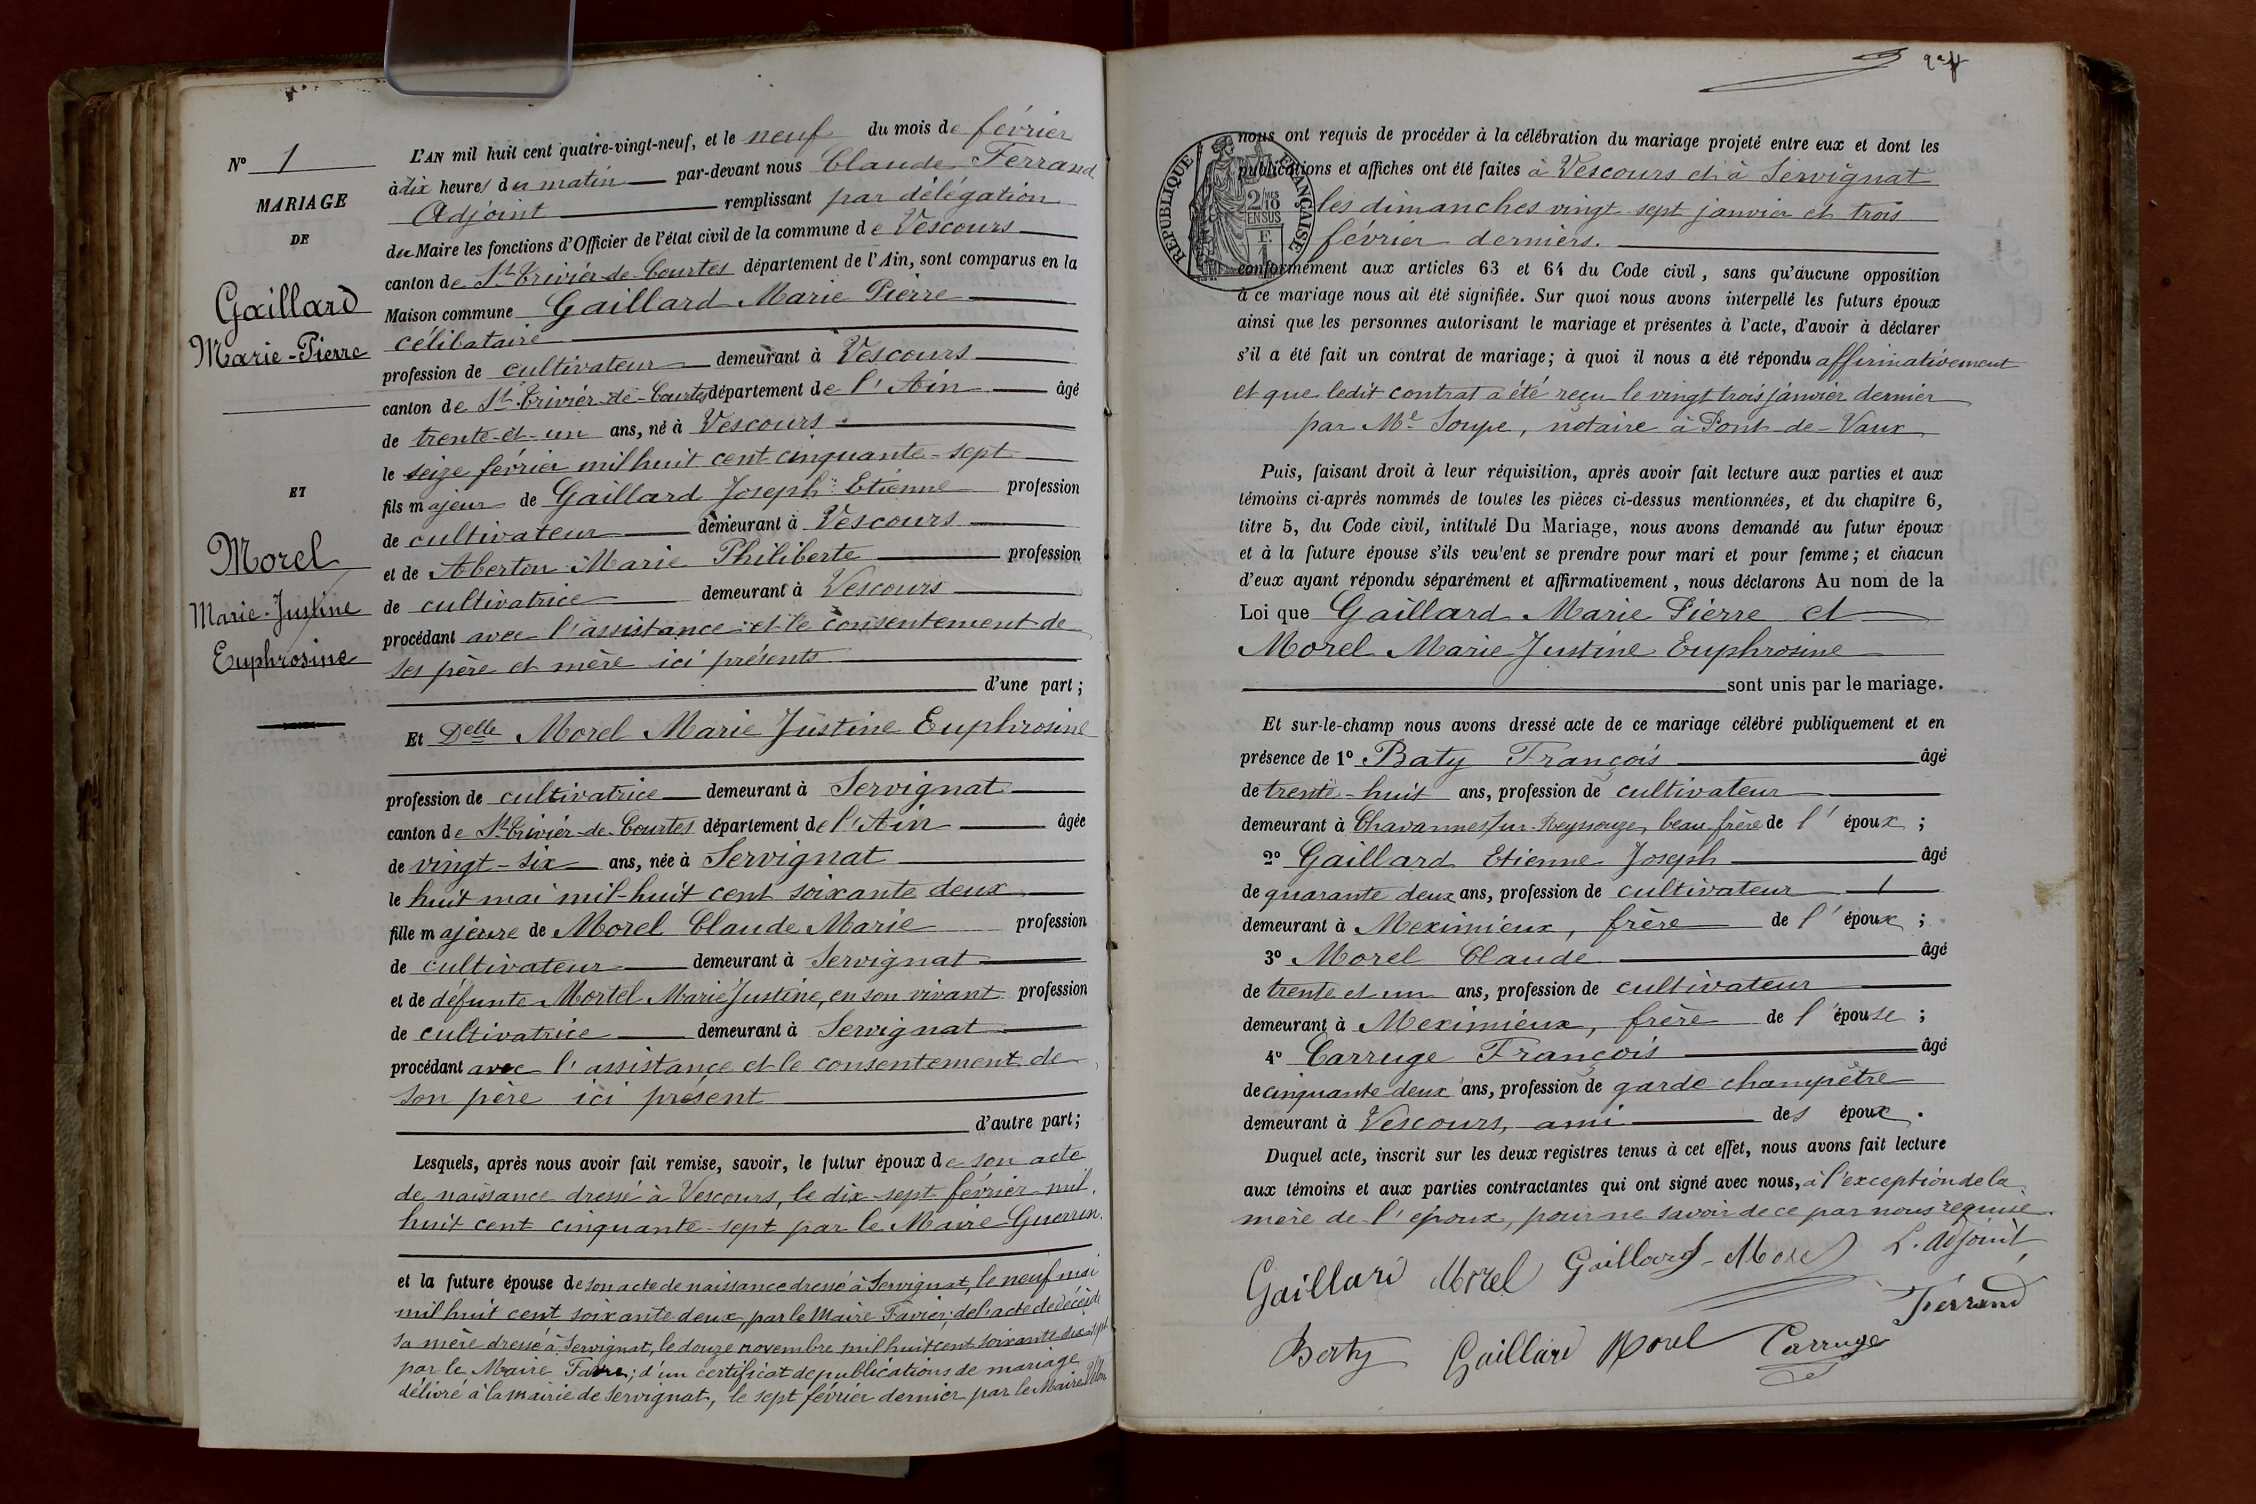 N° 1
MARIAGE
DE
Gaillard
Marie-Pierre
ET
Morel
Marie-Justine
Euphrosine
L'AN mil huit cent quatre-vingt-neuf, et le neuf du mois de février
à dix heures du matin par-devant nous Claude Ferrand
Adjoint remplissant par délégation
du Maire les fonctions d'Officier de l'état civil de la commune de Vescours
canton de St Trivier-de-Courtes département de l'Ain, sont comparus en la
Maison commune Gaillard Marie Pierre
célibataire
profession de cultivateur demeurant à Vescours
canton de St Trivier-de-Courtes département de l'Ain âgé
de trente-et-un ans, né à Vescours
le seize février mil huit cent cinquante-sept
fils majeur de Gaillard Joseph Etienne profession
de cultivateur demeurant à Vescours
et de Aberton Marie Philiberte profession
de cultivatrice demeurant à Vescours
procédant avec l'assistance et le consentement de
ses père et mère ici présents
d'une part;
Et Delle Morel Marie Justine Euphrosine
profession de cultivatrice demeurant à Servignat
canton de St Trivier-de-Courtes département de l'Ain âgée
de vingt-six ans, née à Servignat
le huit mai mil-huit cent soixante deux
fille majeure de Morel Claude Marie profession
de cultivateur demeurant à Servignat
et de défunte Mortel Marie Justine, en son vivant profession
de cultivatrice demeurant à Servignat
procédant avec l'assistance et le consentement de
son père ici présent
d'autre part;
Lesquels, après nous avoir fait remise, savoir, le futur époux de son acte
de naissance dressé à Vescours, le dix-sept février mil
huit cent cinquante-sept par le Maire Guerrin
et la future épouse de son acte de naissance dressé à Servignat, le neuf mai
mil huit cent soixante deux, par le Maire Favier; de l'acte de décès de
sa mère dressé à Servignat, le douze novembre mil huit cent soixante dix-sept
par le Maire Favre; d'un certificat de publications de mariage
délivré à la mairie de Servignat, le sept février dernier par le Maire
RÉPUBLIQUE FRANÇAISE
2/10 EN SUS
F. 1
nous ont requis de procéder à la célébration du mariage projeté entre eux et dont les
publications et affiches ont été faites à Vescours et à Servignat
les dimanches vingt sept janvier et trois
février derniers.
conformément aux articles 63 et 64 du Code civil, sans qu'aucune opposition
à ce mariage nous ait été signifiée. Sur quoi nous avons interpellé les futurs époux
ainsi que les personnes autorisant le mariage et présentes à l'acte, d'avoir à déclarer
s'il a été fait un contrat de mariage; à quoi il nous a été répondu affirmativement
et que ledit contrat a été reçu le vingt trois janvier dernier
par Me Soupe, notaire à Pont-de-Vaux
Puis, faisant droit à leur réquisition, après avoir fait lecture aux parties et aux
témoins ci-après nommés de toutes les pièces ci-dessus mentionnées, et du chapitre 6,
titre 5, du Code civil, intitulé Du Mariage, nous avons demandé au futur époux
et à la future épouse s'ils veulent se prendre pour mari et pour femme; et chacun
d'eux ayant répondu séparément et affirmativement, nous déclarons Au nom de la
Loi que Gaillard Marie Pierre et
Morel Marie Justine Euphrosine
sont unis par le mariage.
Et sur-le-champ nous avons dressé acte de ce mariage célébré publiquement et en
présence de 1° Baty François âgé
de trente-huit ans, profession de cultivateur
demeurant à Chavannes/sur-Reyssouze, beau frère de l'époux;
2° Gaillard Etienne Joseph âgé
de quarante deux ans, profession de cultivateur
demeurant à Meximieux, frère de l'époux;
3° Morel Claude âgé
de trente et un ans, profession de cultivateur
demeurant à Meximieux, frère de l'épouse;
4° Carruge François âgé
de cinquante deux ans, profession de garde champêtre
demeurant à Vescours, ami des époux.
Duquel acte, inscrit sur les deux registres tenus à cet effet, nous avons fait lecture
aux témoins et aux parties contractantes qui ont signé avec nous, à l'exception de la
mère de l'époux, pour ne savoir de ce par nous requise.
Gaillard Morel Gaillard Morel L'adjoint
Ferrand
Baty Gaillard Morel Carruge